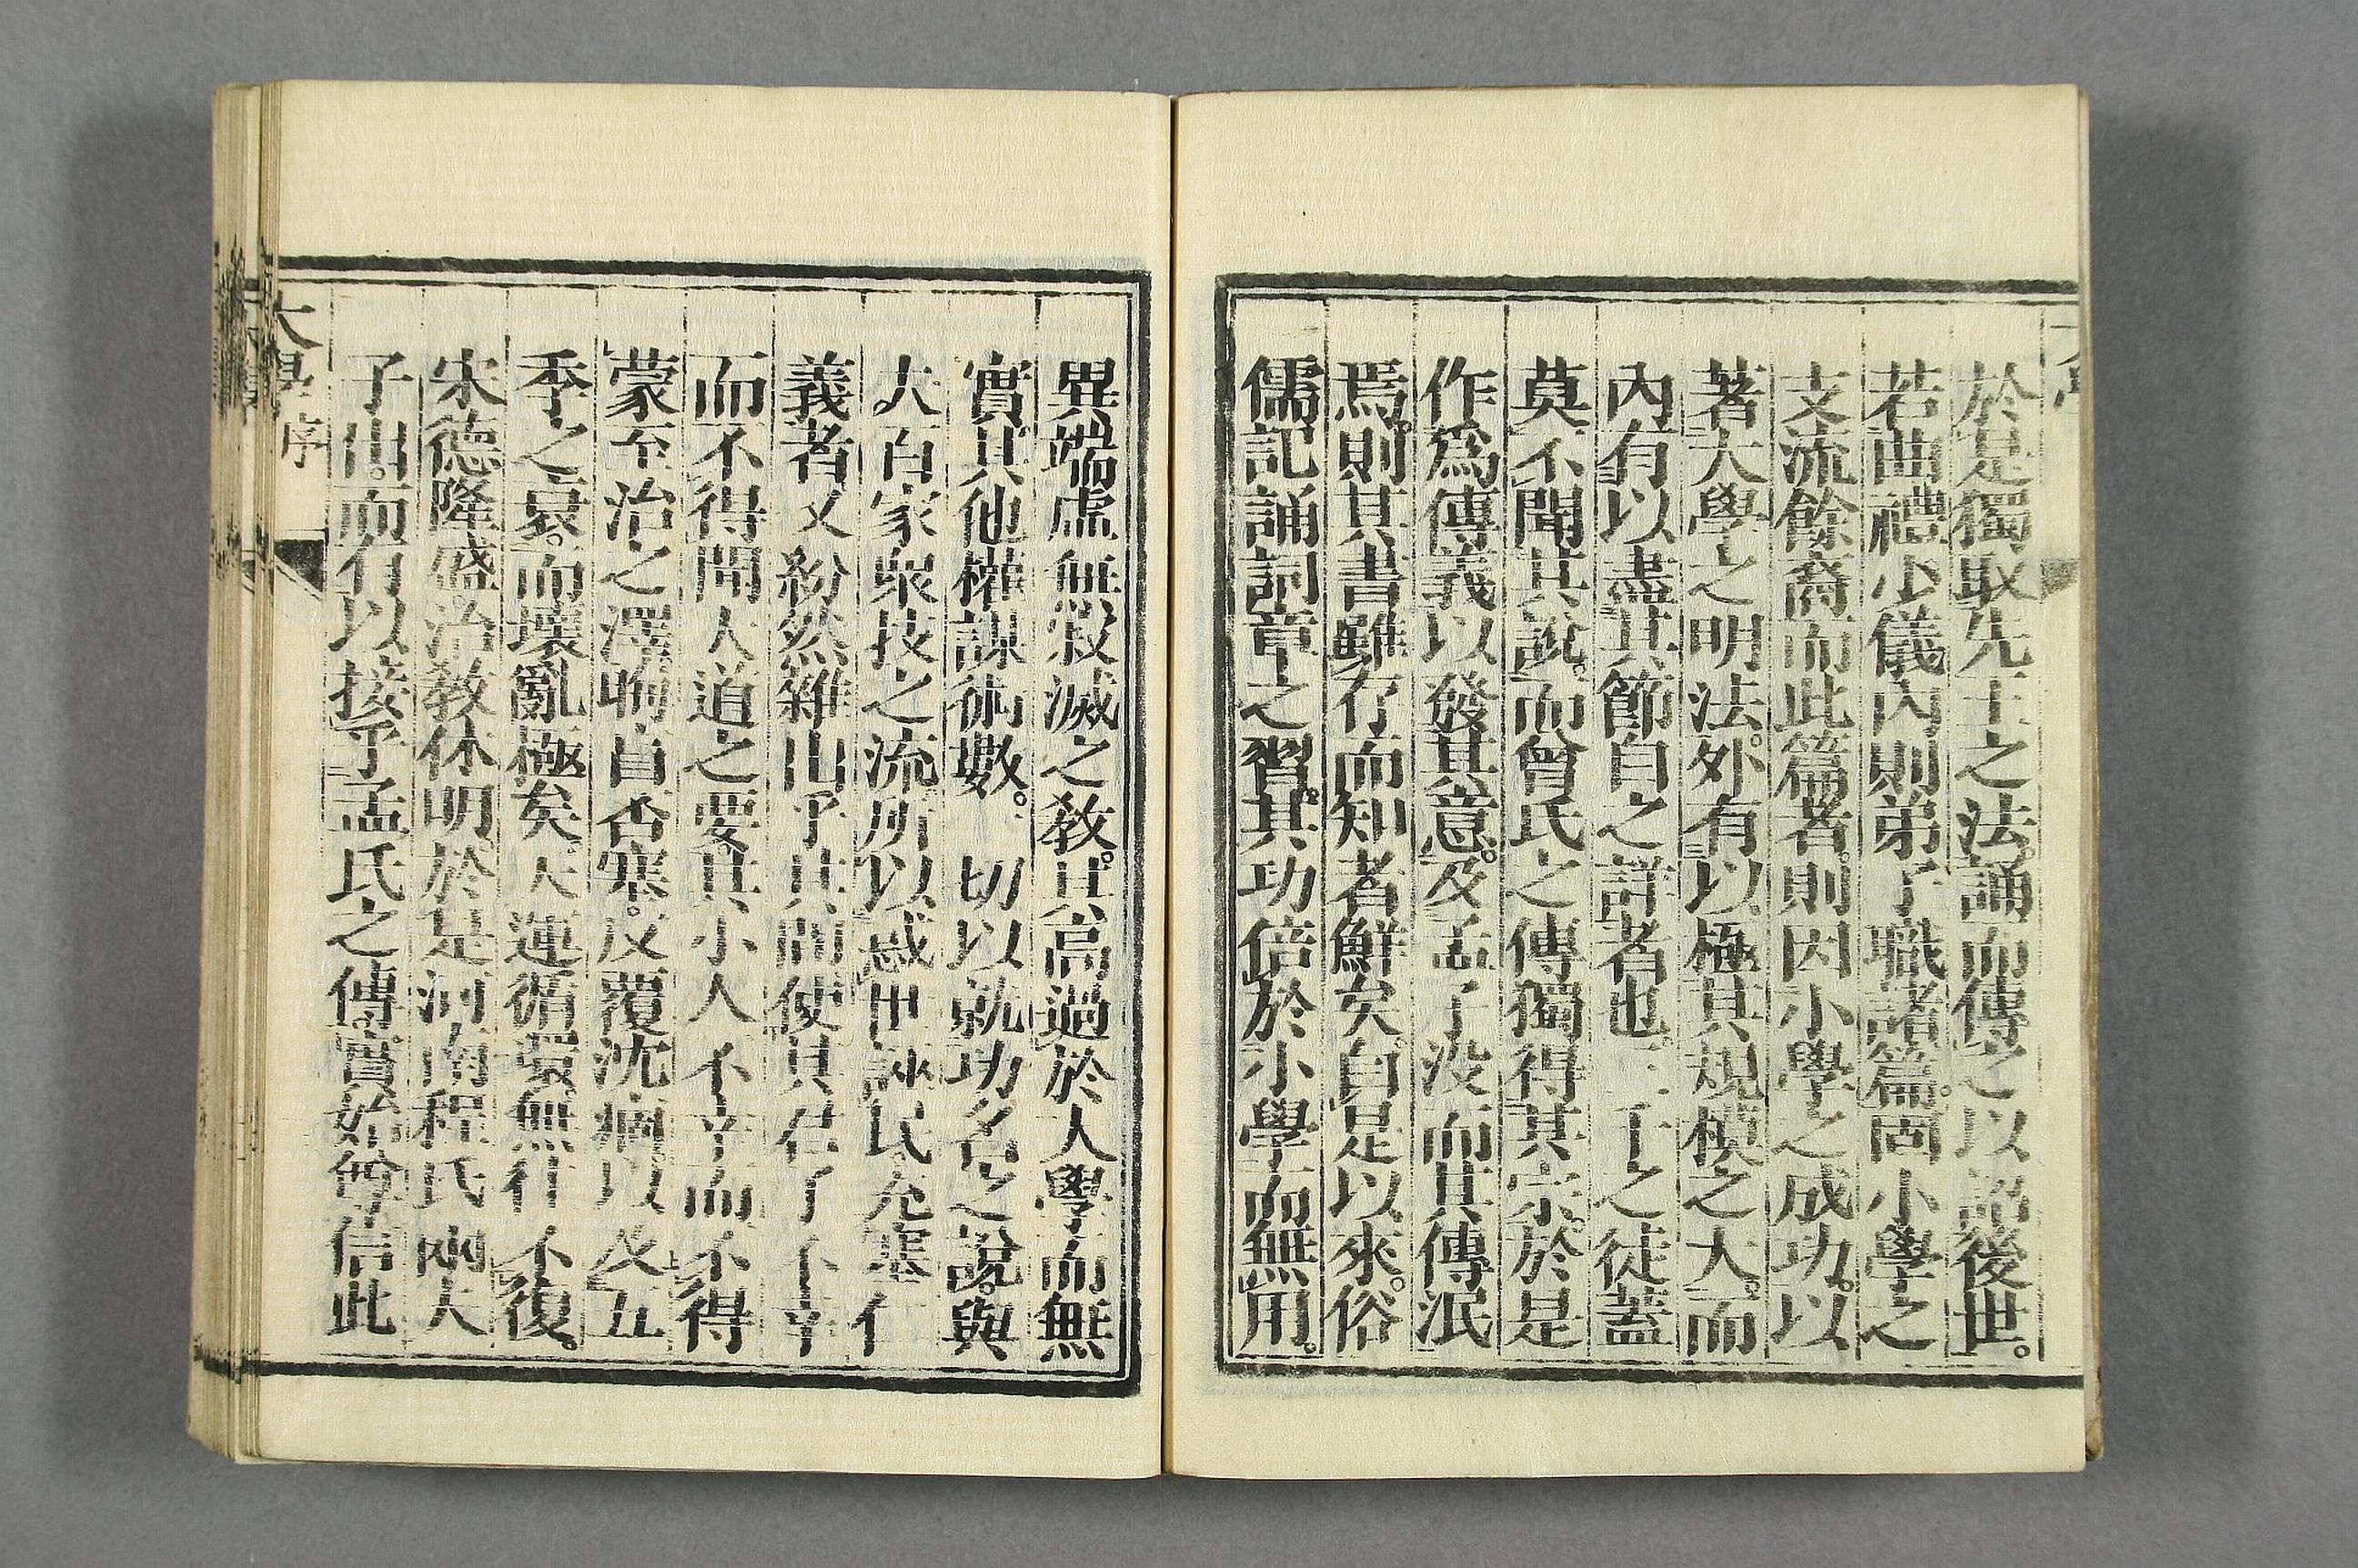 於是獨取先王之法。誦而傳之以詔後世。
若曲禮少儀內則弟子職諸篇。固小學之
支流餘裔。而此篇者。則因小學之成功。以
著大學之明法。外有以極其規模之大。而
內有以盡其節目之詳者也。三千之徒蓋
莫不聞其說。而曾氏之傳獨得其宗。於是
作爲傳義以發其意。及孟子没而其傳泯
焉。則其書雖存而知者鮮矣。自是以來。俗
儒記誦詞章之習。其功倍於小學而無用。
異端虛無寂滅之敎。其高過於大學而無
實。其他權謀術數。一切以就功名之說。與
夫百家衆技之流。所以惑世誣民充塞仁
義者又紛然雜出乎其閒。使其君子不幸
而不得聞大道之要。其小人不幸而不得
蒙至治之澤。晦盲否塞。反覆沈痼。以及五
季之衰。而壞亂極矣。天運循環。無往不復。
宋德隆盛。治敎休明。於是河南程氏兩夫
子出。而有以接乎孟氏之傳。實始尊信此
大學序